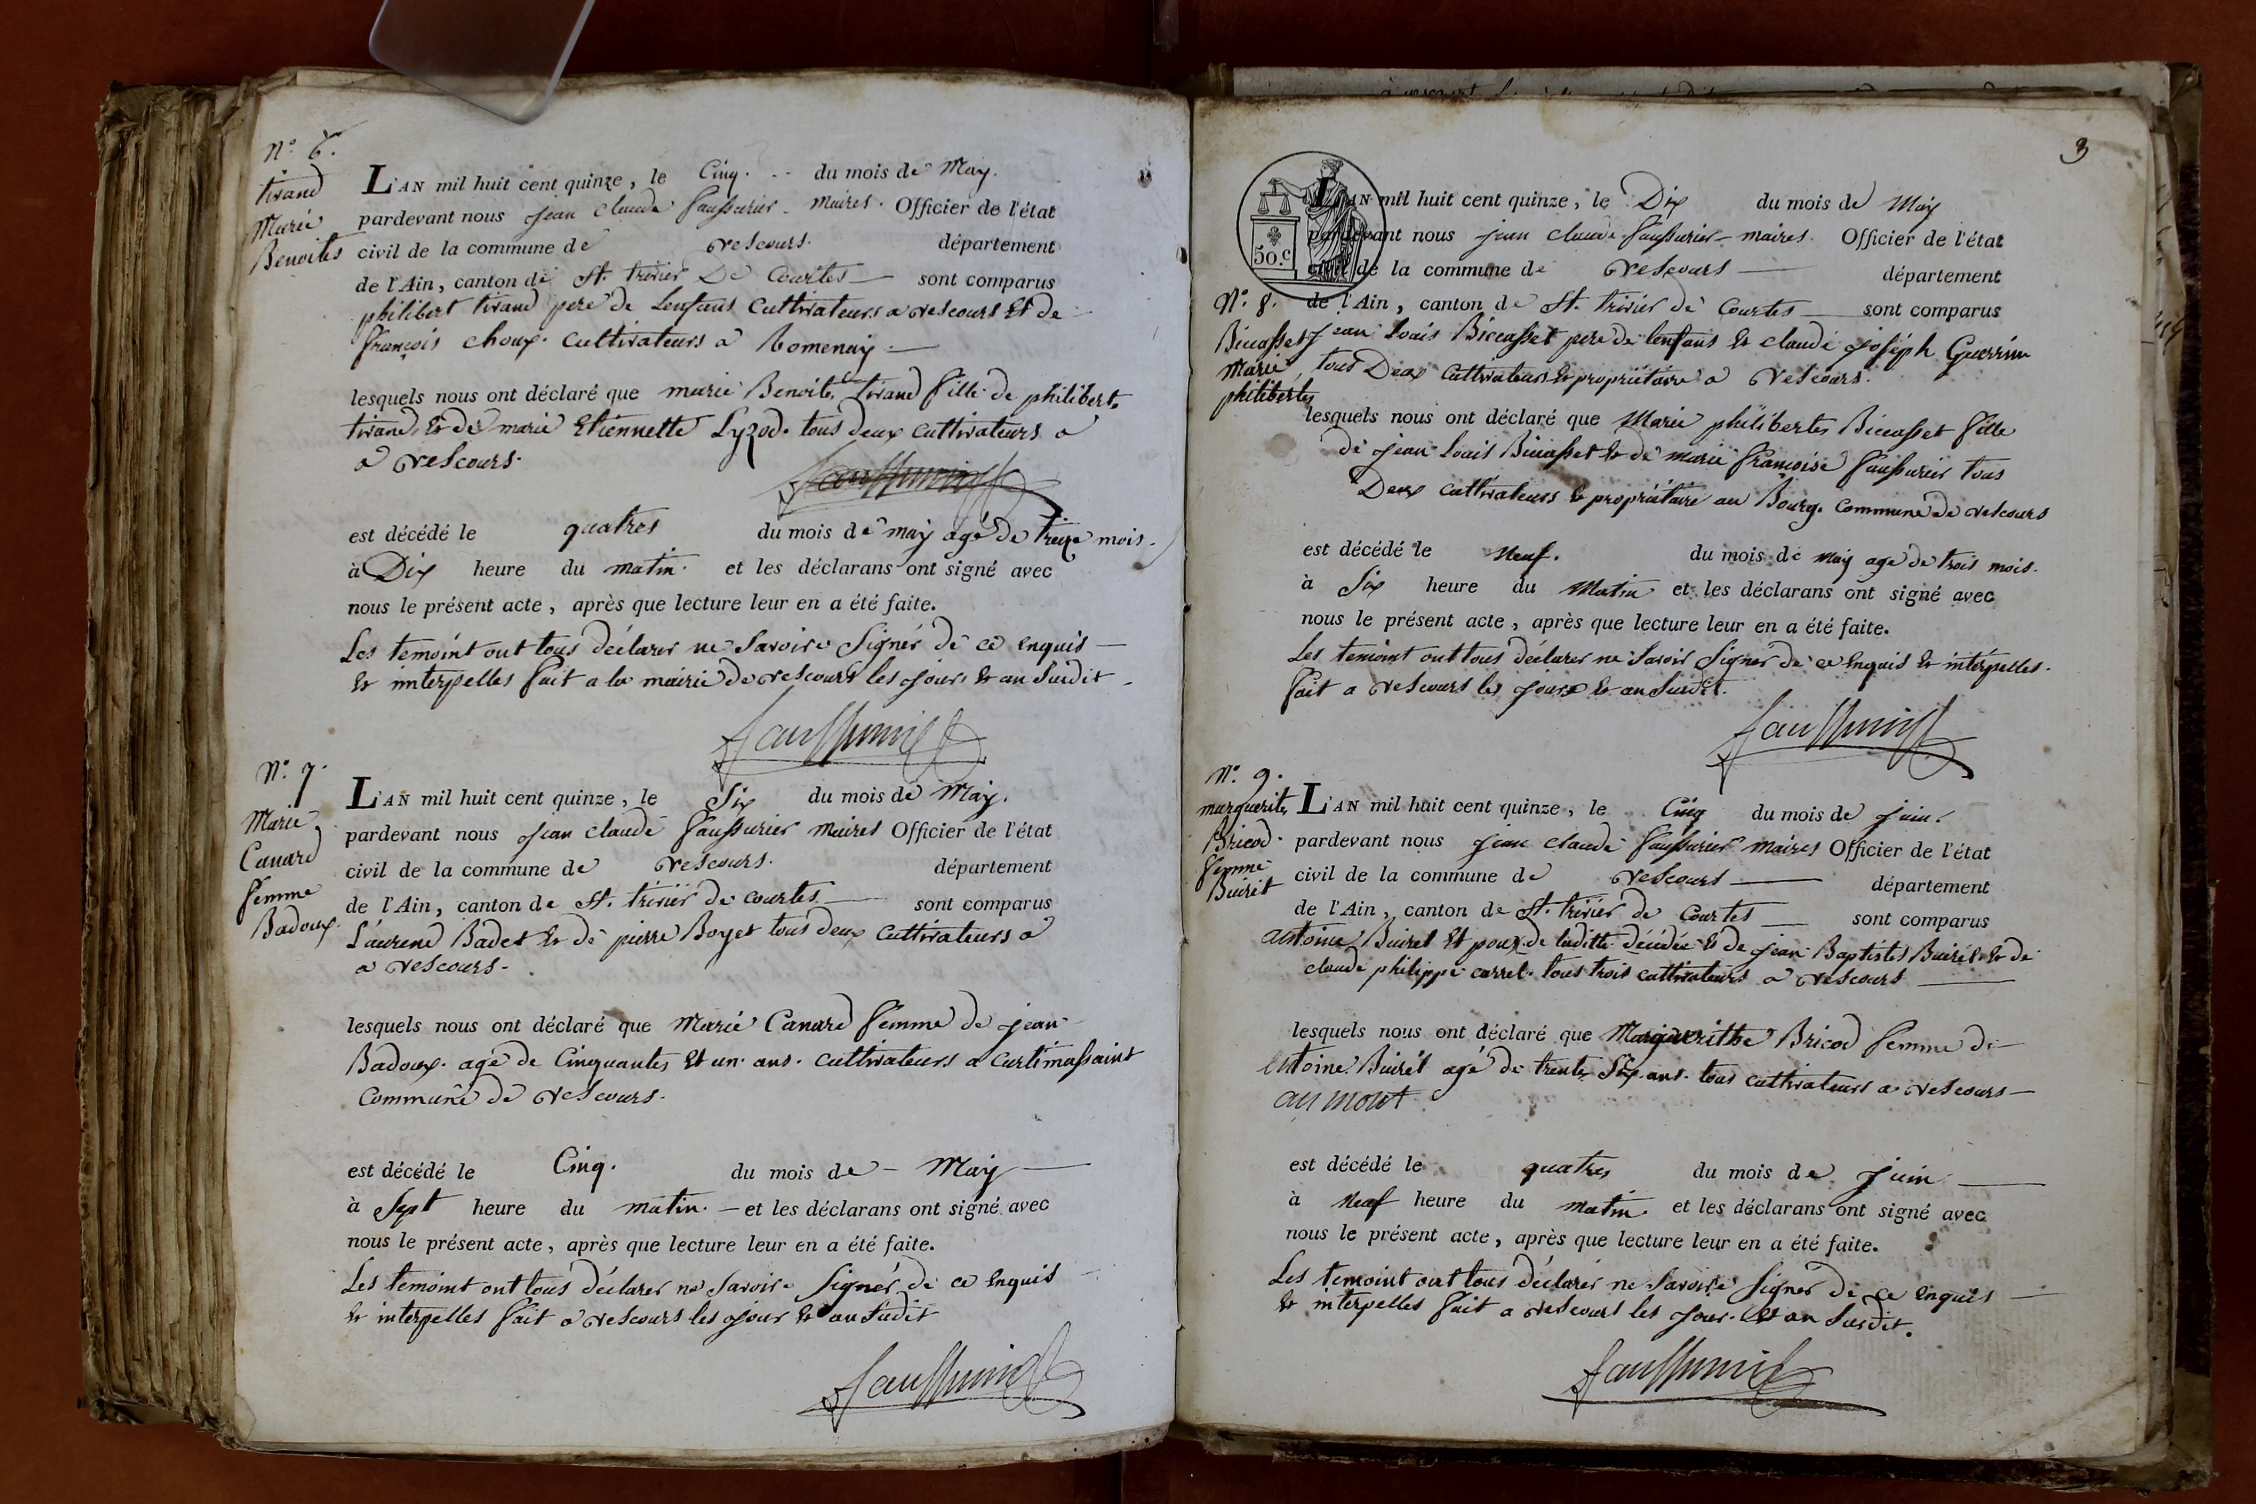 N.º 6.
tirand
Marie
Benoites
L'AN mil huit cent quinze, le Cinq. du mois de May.
pardevant nous jean claude faussurier maires. Officier de l'état
civil de la commune de vescours. département
de l'Ain, canton de St. trivier De Courtes sont comparus
philibert tirand pere de Lenfans Cultivateurs a vescours Et de
françois choux. cultivateurs a Romenay.
lesquels nous ont déclaré que marie Benoite tirand fille de philibert
tirand, & de marie Etiennette Lyzod. tous deux cultivateurs a
a vescours.
est décédé le quatres du mois de may agé de treize mois.
à Dix heure du matin. et les déclarans ont signé avec
nous le présent acte, après que lecture leur en a été faite.
Les temoint ont tous déclarer ne Savoire Signér de ce enquis
& interpelles fait a la mairie de vescours les jours & an Susdit
faussurier
N.º 7.
Marie
Canard
femme
Badoux.
L'AN mil huit cent quinze, le Six du mois de May.
pardevant nous jean claude faussurier maires Officier de l'état
civil de la commune de vescours. département
de l'Ain, canton de St. trivier de courtes sont comparus
Laurend Badet & de pierre Boyet tous deux cultivateurs a
a vescours.
lesquels nous ont déclaré que Marie Canard femme de jean
Badoux. agé de Cinquantes Et un ans. cultivateurs a curtimassaint
Commune de vescours.
est décédé le Cinq. du mois de May
à Sept heure du matin. et les déclarans ont signé avec
nous le présent acte, après que lecture leur en a été faite.
Les temoint ont tous déclarer ne Savoire Signér de ce enquis
& interpelles fait a vescours les jour & an Sudit
faussurier
3
50.c
L'AN mil huit cent quinze, le Dix du mois de May
pardevant nous jean claude faussurier maires. Officier de l'état
civil de la commune de vescours département
N.º 8. de l'Ain, canton de St. trivier de Courtes sont comparus
Biccasset
Marie
philibertes
jean Louis Biccasset pere de lenfans & claude joséph Guerrin
tous Deux cultivateurs & propriétaire a vescours.
lesquels nous ont déclaré que Marie philibertes Biccasset fille
de jean Louis Biccasset & de marie françoise faussurier tous
Deux cultivateurs & propriétaire au Bourg. commune de vescours
est décédé le Neuf. du mois de may age de trois mois.
à Six heure du Matin et les déclarans ont signé avec
nous le présent acte, après que lecture leur en a été faite.
Les temoint ont tous déclarer ne Savoir Signér de ce Enquis & interpelles.
fait a vescours les jours & an Susdit.
faussurier
N.º 9.
marguerites
Bricod.
femme
Buiret
L'AN mil huit cent quinze, le Cinq du mois de juin.
pardevant nous jean claude faussurier maires Officier de l'état
civil de la commune de vescours département
de l'Ain, canton de St. trivier de Courtes sont comparus
antoine Buiret Et poux de laditte décédée & de jean Baptistes Buiret & de
claude philippe carrel. tous trois cultivateurs a vescours
lesquels nous ont déclaré que Margueritte Bricod femme de
antoine Buirét agé de trente Six ans. tous cultivateurs a vescours
au mont
est décédé le quatres du mois de juin
à Neuf heure du matin et les déclarans ont signé avec
nous le présent acte, après que lecture leur en a été faite.
Les temoint ont tous déclarér ne Savoire Signer de ce enquis
& interpelles fait a vescours les jour. Et an Susdit.
faussurier